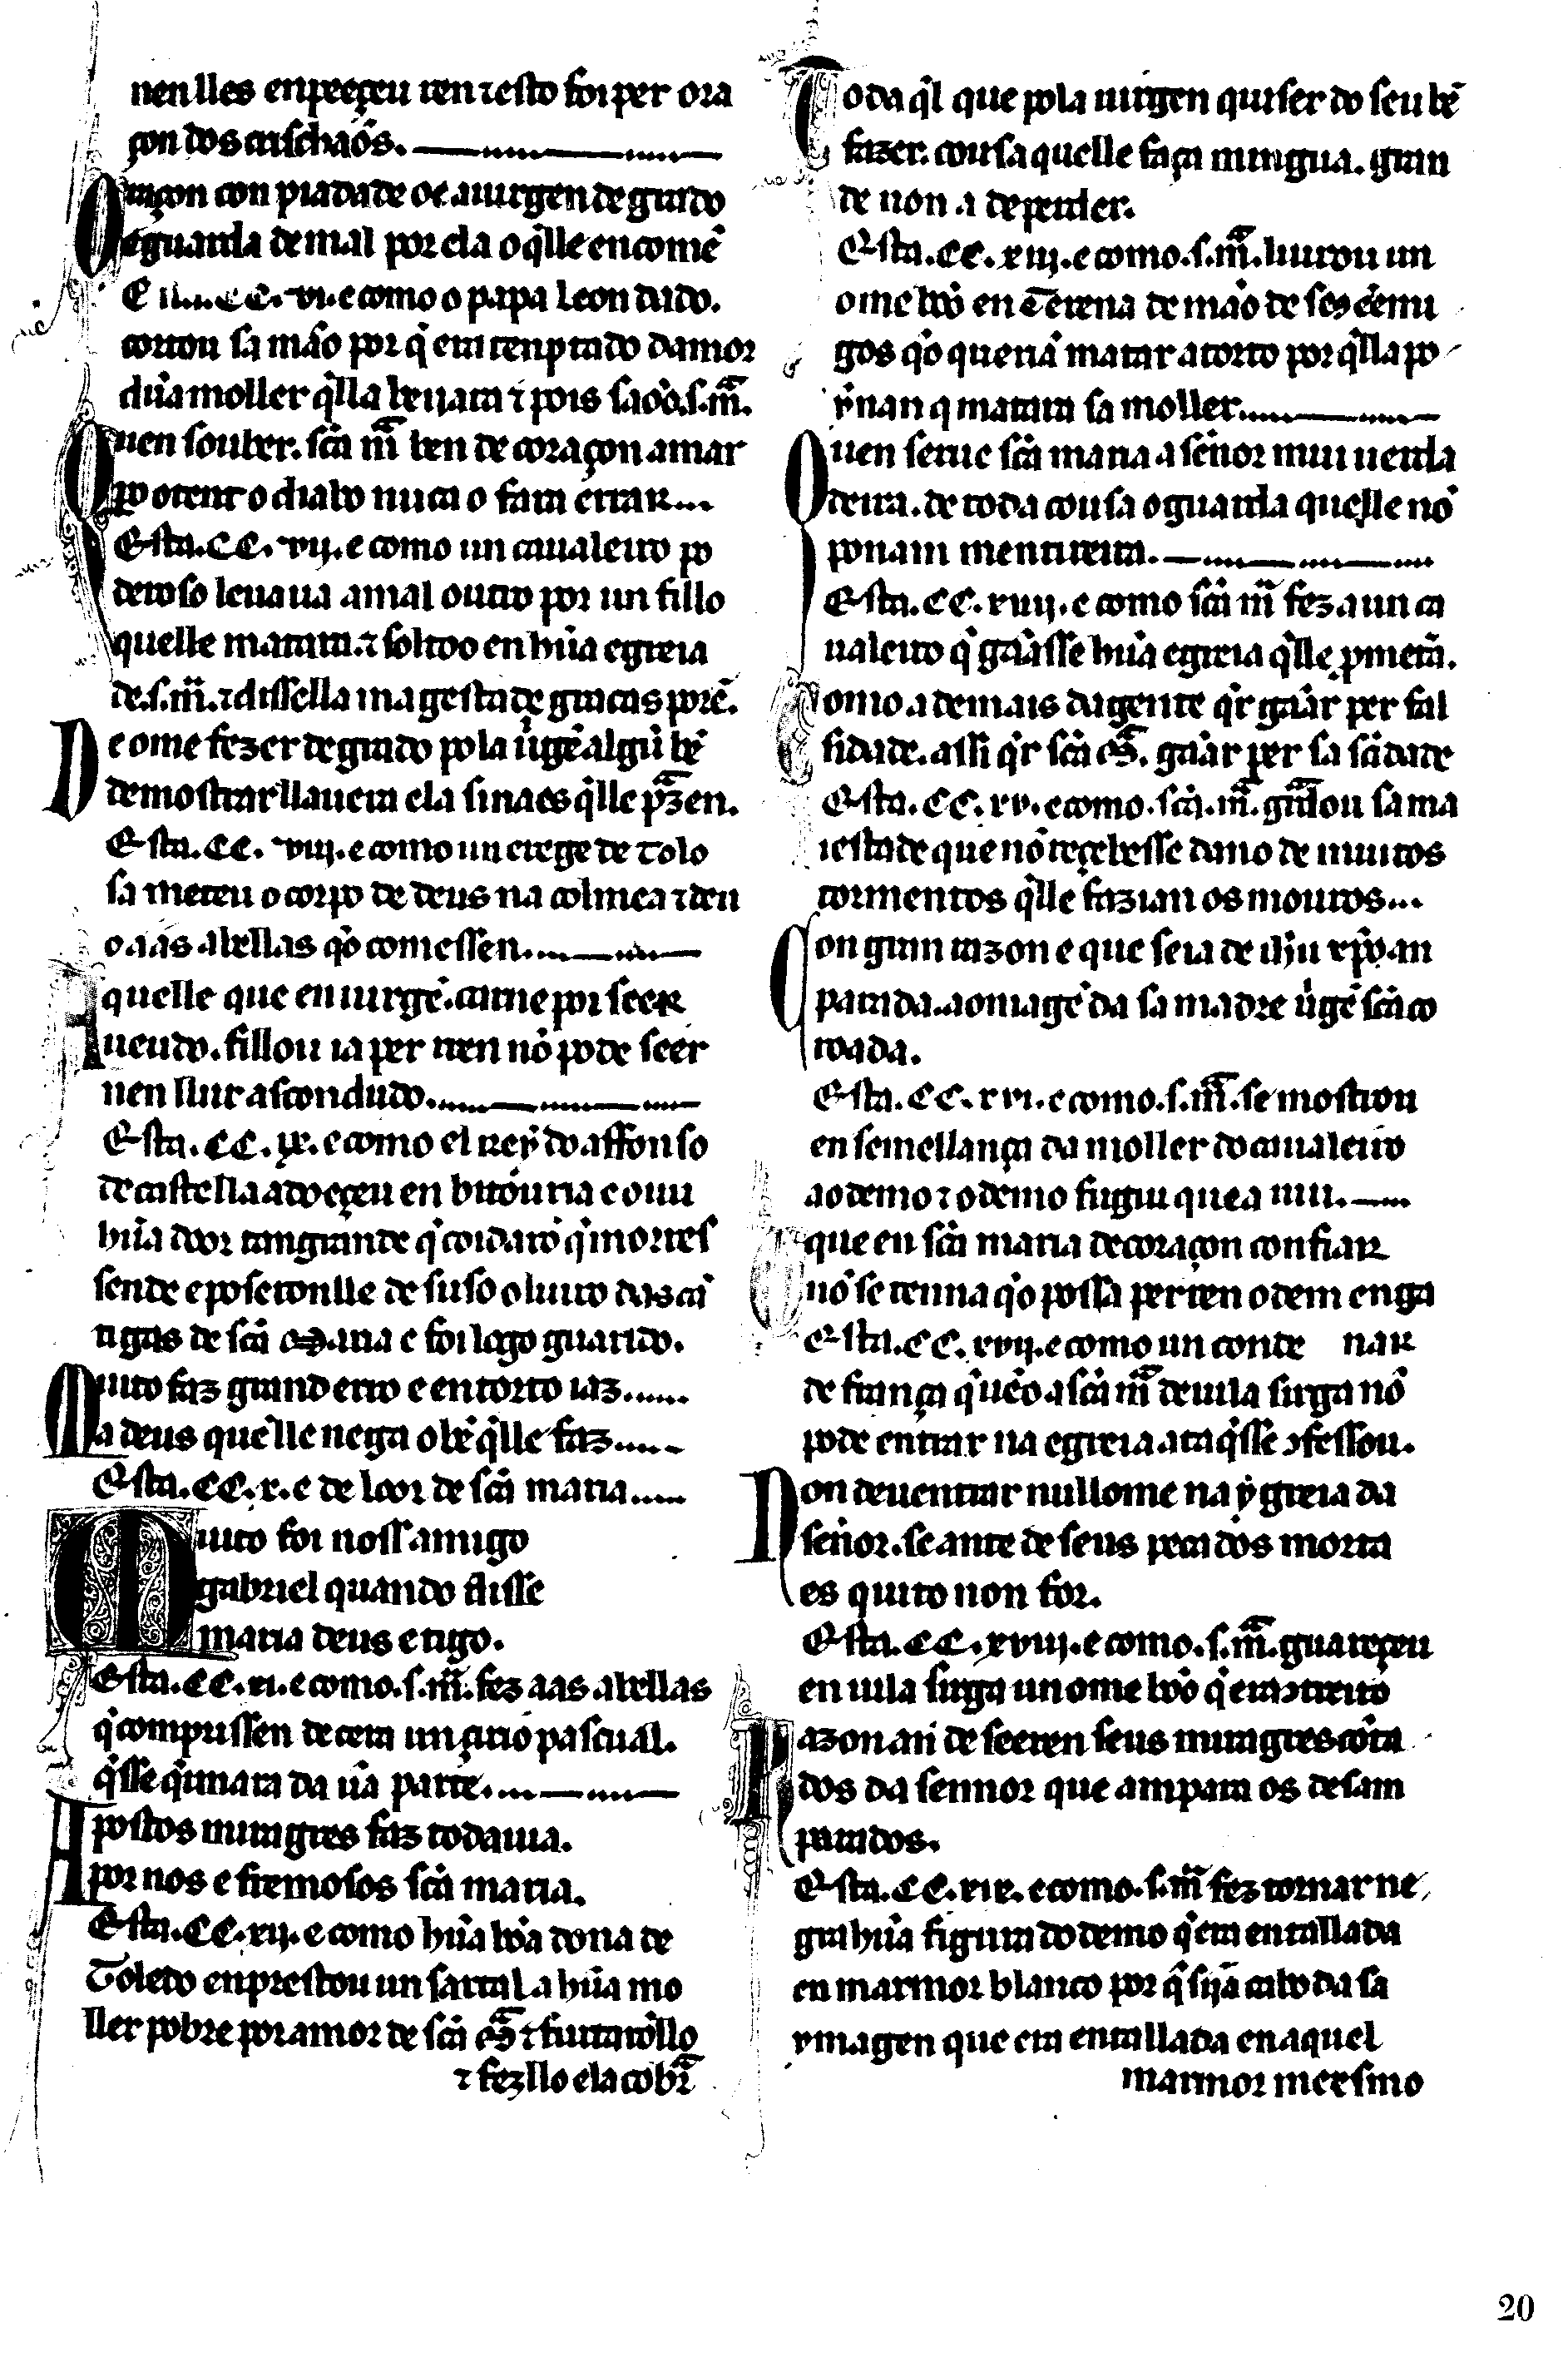 nen lles enpeeçeu ren ⁊ esto foi per ora
çon dos crischãos.
Oraçon con piadade oe a uirgen de grado
e guarda de mal por ela o q̇lle encomẽ
E CC. vi. e como o papa Leon dado.
cortou sa mão por q̇ era tenptado damor
dũa moller q̇lla beyara ⁊ pois saóó. s. m̃a.
Quen souber. sc̃a m̃a ben de coraçon amar
pero o tent o diabo nunca o fara errar...
Esta. CC. vij. e como un caualeiro po
deroso leuaua a mal outro por un fillo
quelle matara. ⁊ soltoo en hũa egreia
de. s. m̃. ⁊ dissella magestade gracas porẽ.
Se ome fezer de grado pola uirgẽ algũ bẽ
demostrar llauera ela sinaes q̇lle praz en.
Esta. CC. viij. e como un erege de tolo
sa meteu o corpo de deus na colmea ⁊ deu
o aas abellas q̇o comessen.
Aquelle que en uirgẽ. carne por seer
ueudo. fillou ia per ren nõ pode seer
nen llur ascondudo.
Esta. CC. ix. e como el rey dõ affonso
de castella adoeçeu en bitoria e ouu
hũa door tan grande q̇ coidarõ q̇ morres
sende e poseronlle de suso o liuro das cã
tigas de sc̃a Maria e foi logo guarido.
Muito faz grand erro e en torto iaz.....
a deus quelle nega o bẽ q̇lle faz.....
Esta. CC. x. e de loor de sc̃a maria.....
Muito foi noss amigo
gabriel quando disse
maria deus e tigo.
Esta. CC. xi. e como. s. m̃. fez aas abellas
q̇ compussen de cera un cirio pascual.
q̇sse q̇imara da ũa parte.
Apostos miragres faz todauia.
por nos e fremosos sc̃a maria.
Esta. CC. xij. e como hũa bõa dona de
Toledo enprestou un sartal a hũa mo
ller pobre por amor de sc̃a M̃a ⁊ furtarõllo
⁊ fezllo ela cobr̃a
Toda q̇l que pola uirgen quiser do seu bẽ
fazer. cousa quelle faça mingua. gran
de non a de perder.
Esta. CC. xiij. e como. s. m̃a. liurou un
ome bõo en Terena de mão de ses ẽemi
gos q̇o querıã matar a torto por q̇lla po
ynan q matara sa moller.
Quen serue sc̃a maria a señor mui uerda
deira. de toda cousa o guarda quelle nõ
ponam mentireira.
Esta. CC. xiiij. e como sc̃a m̃ fez a un ca
ualeiro q̇ gãasse hũa egreia q̇lle ꝓmetã.
Como a demais da gente q̇r gãar per fal
sidade. assi q̇r sc̃a M̃a. gãar per sa sc̃idade
Esta. CC. xv. e como. sc̃a. m̃a. gãrdou sa ma
iestade que nõ reçebesse dano de muitos
tormentos q̇lle fazian os mouros...
Con gran razon e que seia de ih̃u xp̃o an
parada. a omagẽ da sa madre uirgẽ sc̃a co
roada.
Esta. CC. xvi. e como. s. m̃a. se mostrou
en semellança da moller do caualeiro
ao demo ⁊ o demo fugiu que a uiu.
O que en sc̃a maria de coraçon confiar
nõ se tenna q̇o possa per ren o dem enga
Esta. CC. xvij. e como un conde nar
de frança q̇ uẽo a sc̃a m̃a de uila sirga nõ
pode entrar na egreia ata q̇sse ꝯfessou.
Non deuentrar null ome na ygreia da
señor. se ante de seus pecados morta
es quito non for.
Esta. CC. xviij. e como. s. m̃a. guareçeu
en uila sirga un ome bõo q̇ era ꝯtreito
Razon an de seeren seus miragres cõta
dos da sennor que ampara os desam
parados.
Esta. CC. xix. e como. s. m̃ fez tornar ne
gra hũa figura do demo q̇ era entallada
en marmor blanco por q̇ sijã cabo da sa
ymagen que era entallada en aquel
marmor meesmo
20